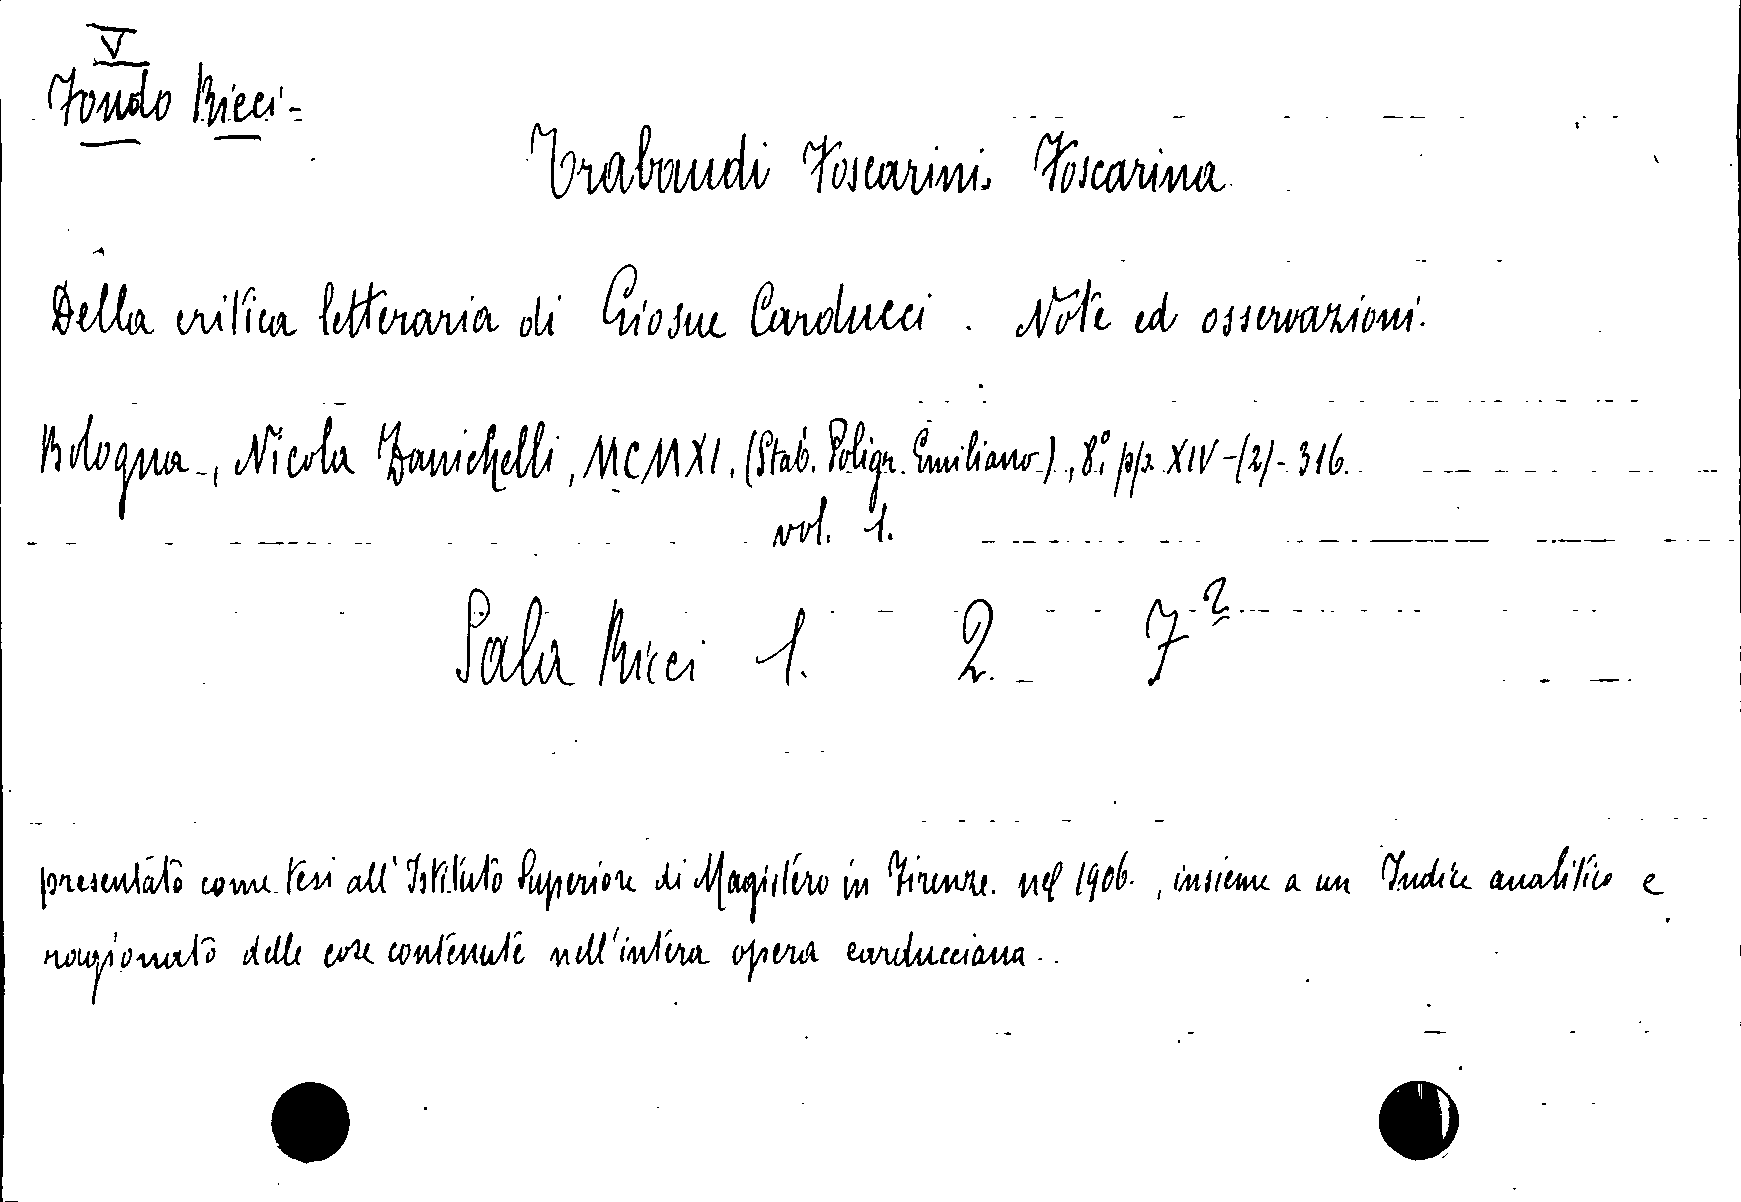 V
Fondo Ricci-
Trabaudi Foscarini. Foscarina
Della critica letteraria di Giosue Carducci. Note ed osservazioni.
Bologna-, Nicola Zanichelli, MCMXI. (Stab. Poligr. Emiliano), 8°, pp. XIV-(2)-316.
vol. 1.
Sala Ricci 1. 2. 7²
presentato come tesi all'Istituto Superiore di Magistero in Firenze. nel 1906., insieme a un Indice analitico e
ragionato delle cose contenute nell'intera opera carducciana..